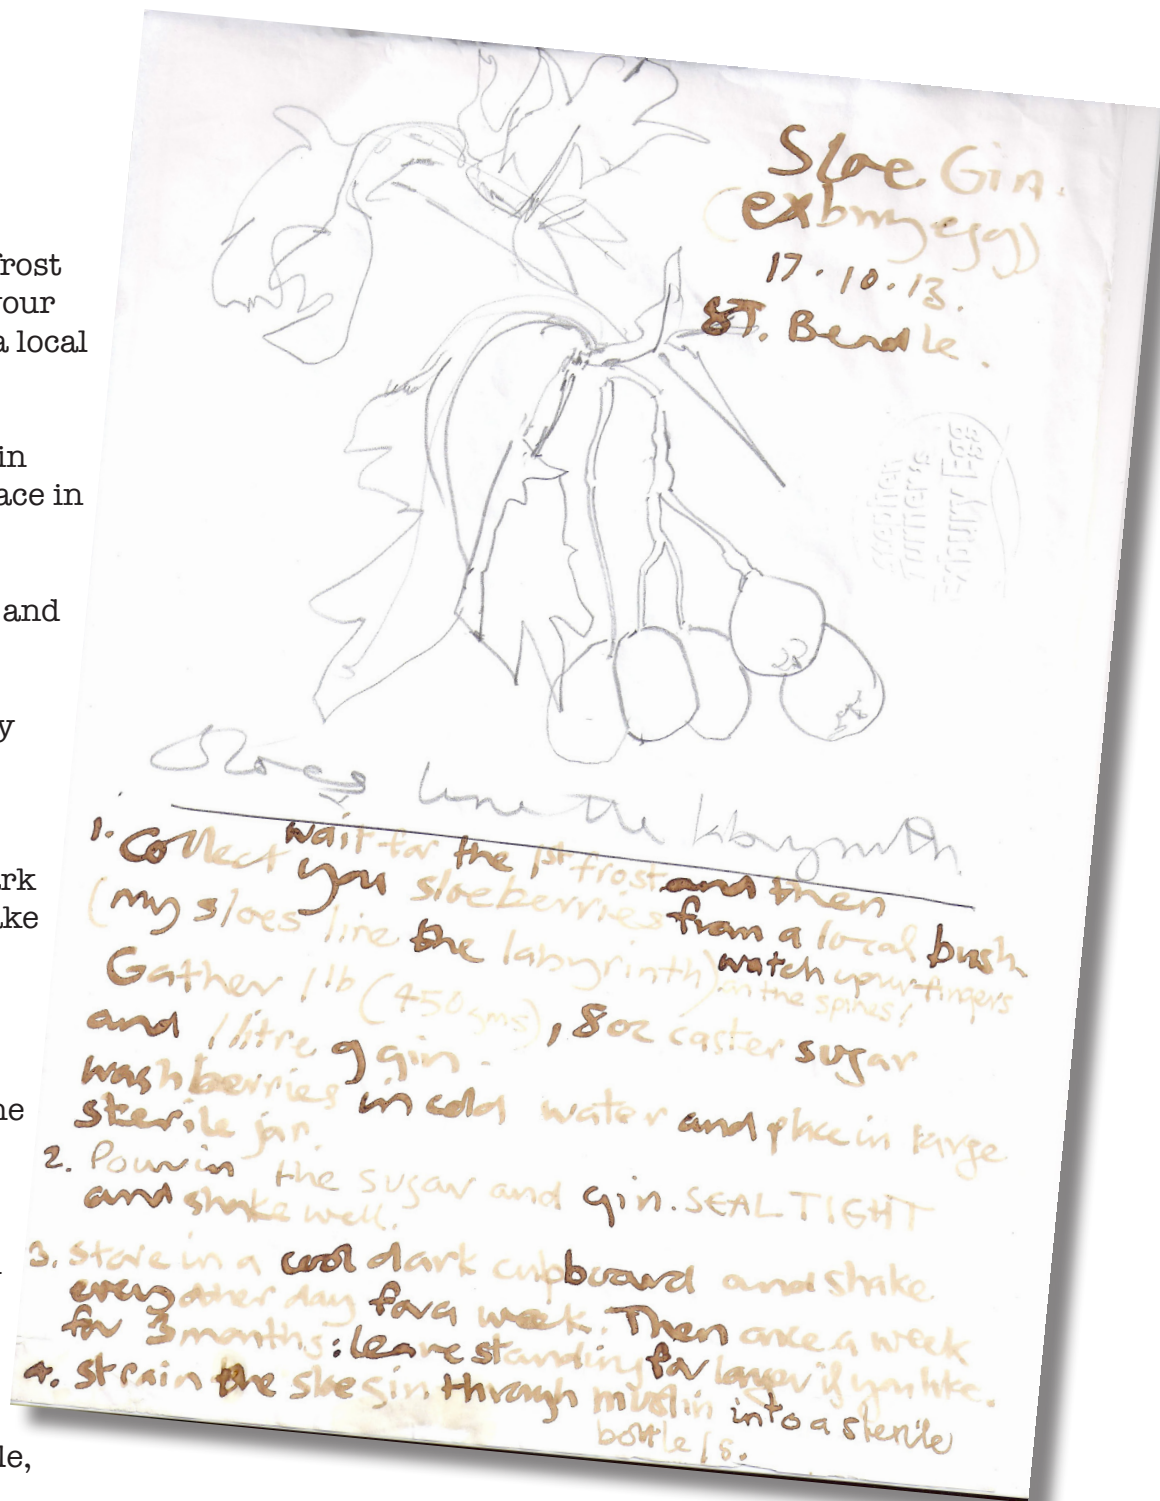 frost
your
a local
in
ace in
and
y
ark
ake
ne
le,
Sloe Gin.
(exbury egg)
17.10.13.
ST. Beadle.
Stephen
Turner's
Exbury Egg
Sloes line the labyrinth
1. wait for the 1st frost and then
Collect you sloeberries from a local bush
(my sloes line the labyrinth) watch your fingers
on the spines!
Gather 1 lb (450gms), 8oz caster sugar
and 1 litre of gin.
wash berries in cold water and place in large
sterile jar.
2. Pour in the sugar and gin. SEAL TIGHT
and shake well.
3. Store in a cool dark cupboard and shake
every other day for a week. Then once a week
for 3 months: leave standing for longer if you like.
4. Strain the sloe gin through muslin into a sterile
bottle/s.